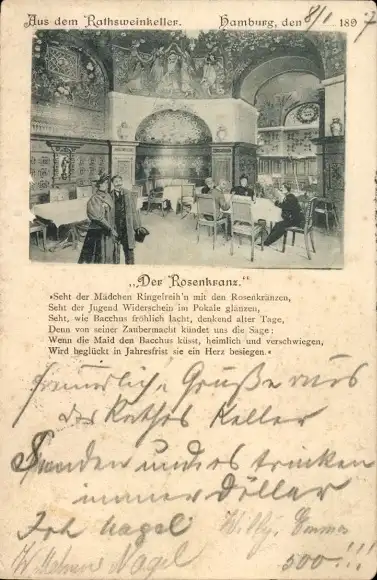 Aus dem Rathsweinkeller. Hamburg, den 8/1 1897
„Der Rosenkranz."
»Seht der Mädchen Ringelreih'n mit den Rosenkränzen,
Seht der Jugend Widerschein im Pokale glänzen,
Seht, wie Bacchus fröhlich lacht, denkend alter Tage,
Denn von seiner Zaubermacht kündet uns die Sage:
Wenn die Maid den Bacchus küsst, heimlich und verschwiegen,
Wird beglückt in Jahresfrist sie ein Herz besiegen.«
Grüße aus
Keller
und trinken
immer
Joh Nagel Willy.
Nagel 500!!!